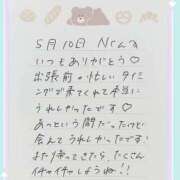 5月10日 Nくんへ
いつもありがとう♡
出張前の忙しいタイミ
ングで来てくれて本当に
うれしかったです!
あっという間だったけど
会えてうれしかったです!
また帰ってきたら、たくさん
イチャイチャしようね!!